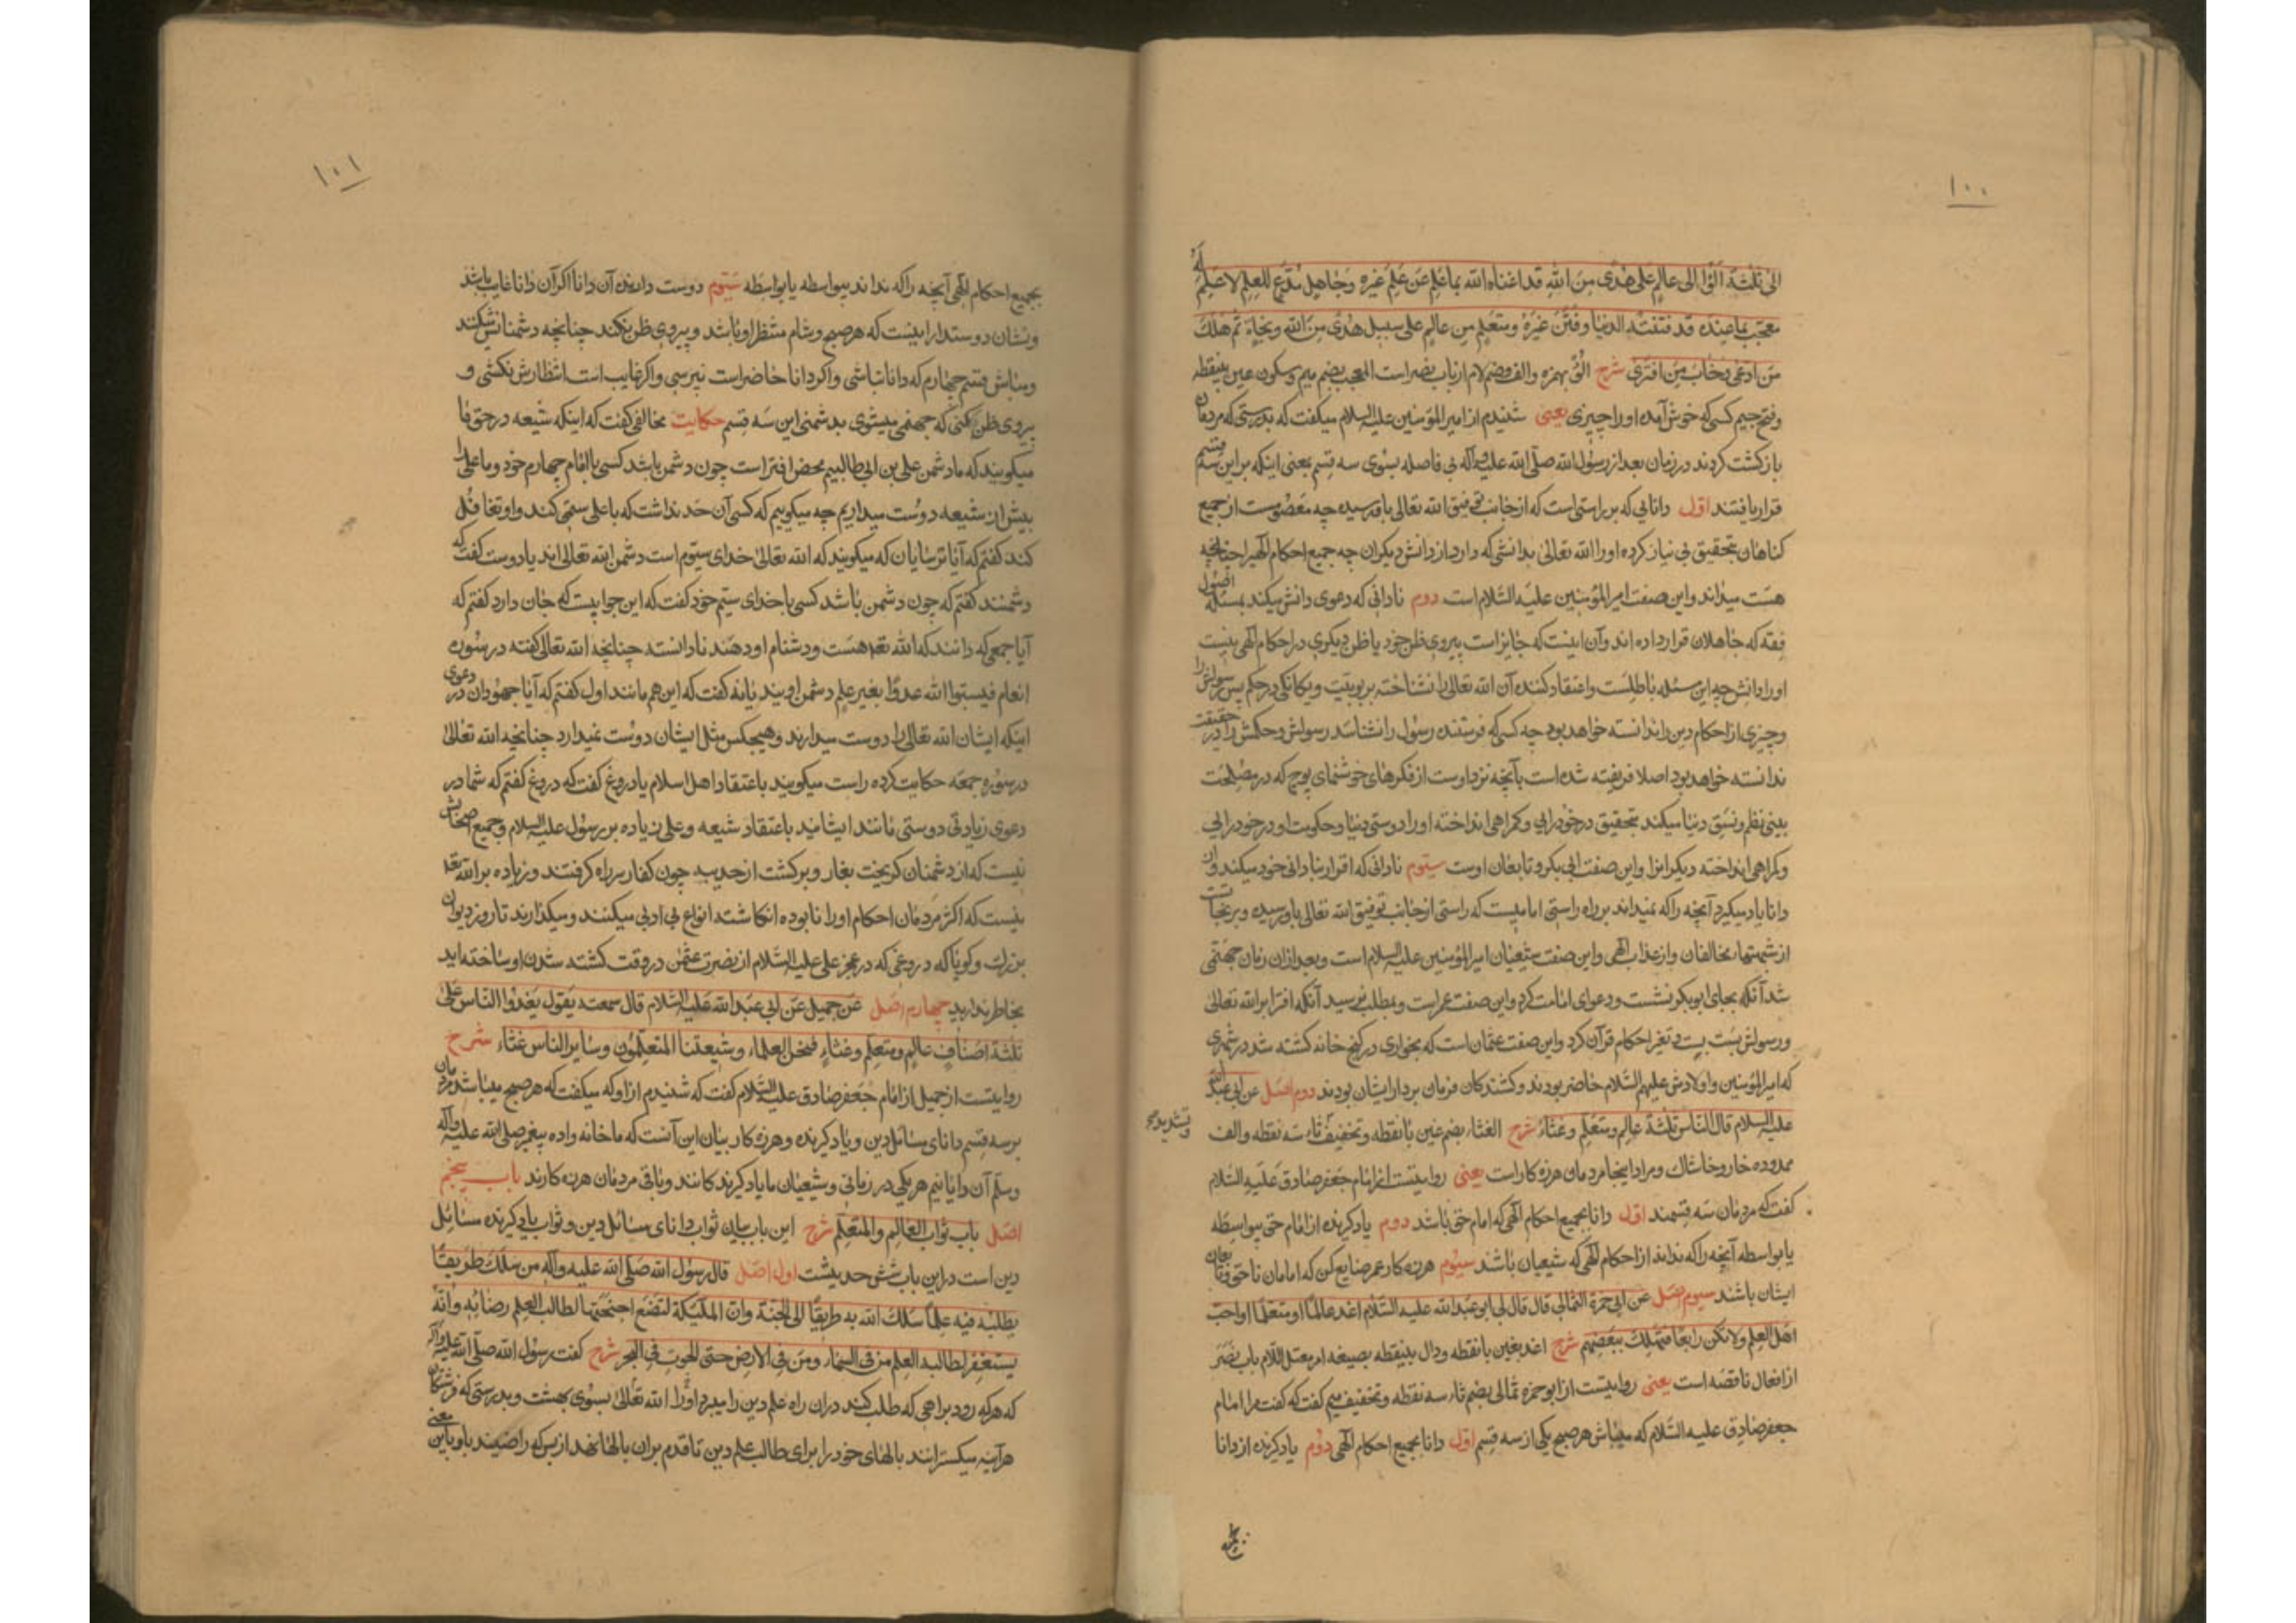 ۱۰۰
الی ثلثة آلوا الی عالم علی هدی من الله قد اغناه الله بما علم عن علم غیره و جاهل مدع للعلم لا علم له
معجب بما عنده قد فتنته الدنیا و فتن غیره و متعلم من عالم علی سبیل هدی من الله و نجاة ثم هلک
من ادعی و خاب من افتری شرح الو بهمزه و الف و ضم لام از باب نصر است المعجب بضم میم و سکون عین بینقطه
و فتح جیم کسی که خوش آمده او را چیزی یعنی شنیدم از امیر المؤمنین علیه السلام میگفت که بدرستی که مردمان
بازگشت کردند در زمان بعد از رسول الله صلی الله علیه و آله بی فاصله بسوی سه قسم یعنی اینکه بر این سه قسم
قرار یافتند اول دانایی که بر راستی است که از جانب توفیق الله تعالی باو رسیده چه معصومست از جمیع
کناهان بتحقیق بی نیاز کرده او را الله تعالی بدانشی که دارد از دانش دیکران چه جمیع احکام الهی را چنانچه
هست میداند و این صفت امیر المؤمنین علیه السلام است دوم نادانی که دعوی دانش میکند بمسئله اصول
فقه که جاهلان قرار داده اند و آن اینست که جایز است پیروی ظن خود یا ظن دیکری در احکام الهی نیست
او را دانش چه این مسئله باطلست و اعتقاد کننده آن الله تعالی را نشناخته بربوبیت و یکانکی در حکم پس رسولش را
و چیزی از احکام دین را ندانسته خواهد بود چه کسی که فرستنده رسول را نشناسد رسولش و حکمش را در حقیقت
ندانسته خواهد بود اصلا فریفته شده است بآنچه نزد اوست از فکرهای خوشنمای پوچ که در مصلحت
بینی نظم و نسق دنیا میکند بتحقیق در خودرایی و کمراهی انداخته او را دوستی دنیا و حکومت او در خودرایی
و کمراهی انداخته دیکرانرا و این صفت ابی بکر و تابعان اوست سیوم نادانی که اقرار بنادانی خود میکند و از
دانا یاد میکیرد آنچه را که نمیداند بر راه راستی امامیست که راستی از جانب توفیق الله تعالی باو رسیده و بر نجات است
از شبهتهای مخالفان و از عذاب الهی و این صفت شیعیان امیر المؤمنین علیه السلام است و بعد ازان زمان جهنمی
شد آنکه بجای ابو بکر نشست و دعوای امامت کرد و این صفت عمر است و بمطلب نرسید آنکه افترا بر الله تعالی
و رسولش بست و تغیر احکام قرآن کرد و این صفت عثمان است که بخواری در کنج خانه کشته شد در شهری
که امیر المؤمنین و اولادش علیهم السلام حاضر بودند و کشندکان فرمان بردار ایشان بودند دوم اصل عن ابی عبد الله
علیه السلام قال الناس ثلثة عالم و متعلم و غثاء شرح الغثاء بضم غین با نقطه و تخفیف ثاء سه نقطه و الف
و تشدید
ممدوده خار و خاشاک و مراد اینجا مردمان هرزه کار است یعنی روایتست از امام جعفر صادق علیه السلام
گفت که مردمان سه قسمند اول دانا بجمیع احکام الهی که امام حق باشد دوم یاد کیرنده از امام حق بیواسطه
یا بواسطه آنچه را که نداند از احکام الهی که شیعیان باشند سیوم هرزه کار عمر ضایع کن که امامان ناحق و تابعان
ایشان باشند سیوم اصل عن ابی حمزة الثمالی قال قال لی ابو عبد الله علیه السلام اغد عالما او متعلما او احب
اهل العلم و لا تکن رابعا فتهلک ببغضهم شرح اغد بغین با نقطه و دال بینقطه بصیغه امر معتل اللام باب نصر
از افعال ناقصه است یعنی روایتست از ابو حمزه ثمالی بضم ثاء سه نقطه و تخفیف میم گفت که گفت مرا امام
جعفر صادق علیه السلام که میباش هر صبح یکی از سه قسم اول دانا بجمیع احکام الهی دوم یاد کیرنده از دانا
بجمیع
۱۰۱
بجمیع احکام الهی آنچه را که نداند بیواسطه یا بواسطه سیوم دوست دارنده آن دانا اکر آن دانا غایب باشد
و نشان دوستدار اینست که هر صبح و شام منتظر او باشد و پیروی ظن نکند چنانچه دشمنانش میکنند
و مباش قسم چهارم که دانا نباشی و اکر دانا حاضر است نپرسی و اکر غایب است انتظارش نکشی و
پیروی ظن کنی که جهنمی میشوی بدشمنی این سه قسم حکایت مخالفی گفت که اینکه شیعه در حق ما
میکویند که ما دشمن علی بن ابی طالبیم محض افتراست چون دشمن باشد کسی با امام چهارم خود و ما علی را
بیش از شیعه دوست میداریم چه میکوییم که کسی آن حد نداشت که با علی ستمی کند و او تغافل
کند گفتم که آیا ترسایان که میکویند که الله تعالی خدای سیوم است دشمن الله تعالی اند یا دوست گفت که
دشمنند گفتم که چون دشمن باشد کسی با خدای سیم خود گفت که این جوابیست که جان دارد گفتم که
آیا جمعی که دانند که الله تعالی هست و دشنام او دهند نادانسته چنانچه الله تعالی گفته در سوره
انعام فیسبوا الله عدوا بغیر علم دشمن اویند یا نه گفت که این هم مانند اول گفتم که آیا جهودان در دعوی
اینکه ایشان الله تعالی را دوست میدارند و هیچکس مثل ایشان دوست نمیدارد چنانچه الله تعالی
در سوره جمعه حکایت کرده راست میکویند باعتقاد اهل اسلام یا دروغ گفت که دروغ گفتم که شما در
دعوی زیادتی دوستی مانند ایشانید باعتقاد شیعه و علی زیاده بر رسول علیه السلام و جمیع اصحابش
نیست که از دشمنان کریخت بغار و برکشت از حدیبیه چون کفار سر راه گرفتند و زیاده بر الله تعالی
نیست که اکثر مردمان احکام او را نابوده انکاشته انواع بی ادبی میکنند و میکذارند تا روز دیوان
بزرک و کویا که دروغی که در عجز علی علیه السلام از نصرت عثمن در وقت کشته شدن او ساخته اید
بخاطر ندارید چهارم اصل عن جمیل عن ابی عبد الله علیه السلام قال سمعته یقول یغدوا الناس علی
ثلثة اصناف عالم و متعلم و غثاء فنحن العلماء و شیعتنا المتعلمون و سایر الناس غثاء شرح
روایتست از جمیل از امام جعفر صادق علیه السلام گفت که شنیدم ازو که میگفت که هر صبح میباشد مردمان
بر سه قسم دانای مسائل دین و یاد کیرنده و هرزه کار بیان این آنست که ما خانه واده پیغمبر صلی الله علیه و آله
و سلم آن دانایانیم هر یکی در زمانی و شیعیان ما یاد کیرندکانند و باقی مردمان هرزه کارند باب پنجم
اصل باب ثواب العالم و المتعلم شرح این باب بیان ثواب دانای مسائل دین و ثواب یاد کیرنده مسائل
دین است در این باب شش حدیثست اول اصل قال رسول الله صلی الله علیه و آله من سلک طریقا
یطلب فیه علما سلک الله به طریقا الی الجنة و ان الملئکة لتضع اجنحتها لطالب العلم رضا به و انه
یستغفر لطالب العلم من فی السماء و من فی الارض حتی الحوت فی البحر شرح گفت رسول الله صلی الله علیه و آله
که هر که رود براهی که طلب کند دران راه علم دین را میبرد او را الله تعالی بسوی بهشت و بدرستی که فرشتکان
هر آینه میکسترانند بالهای خود را برای طالب علم دین تا قدم بران بالها نهد از بس که راضیند باو باین معنی